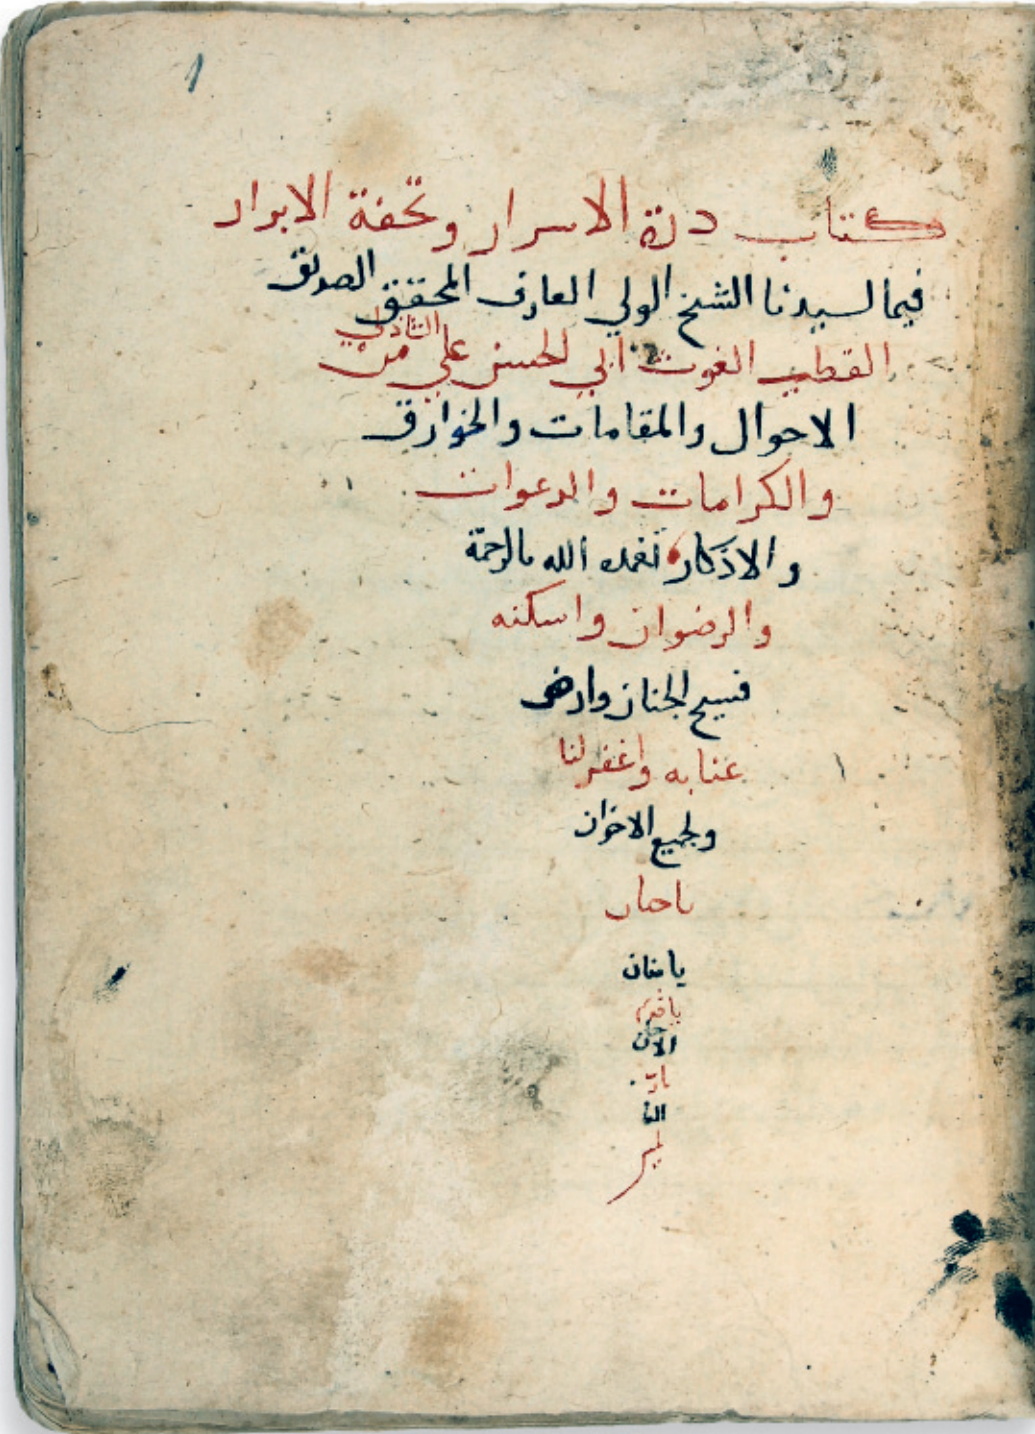 ١
كتاب درة الاسرار وتحفة الابرار
فيما لسيدنا الشيخ الولي العارف المحقق الصديق
القطب الغوث ابي الحسن علي الشاذلي من
الاحوال والمقامات والخوارق
والكرامات والدعوات
والاذكار تغمده الله بالرحمة
والرضوان واسكنه
فسيح الجنان وارض
عنا به واغفر لنا
ولجميع الاخوان
ياحنان
يامنان
يا قديم
الا
يارب
العا
لمين